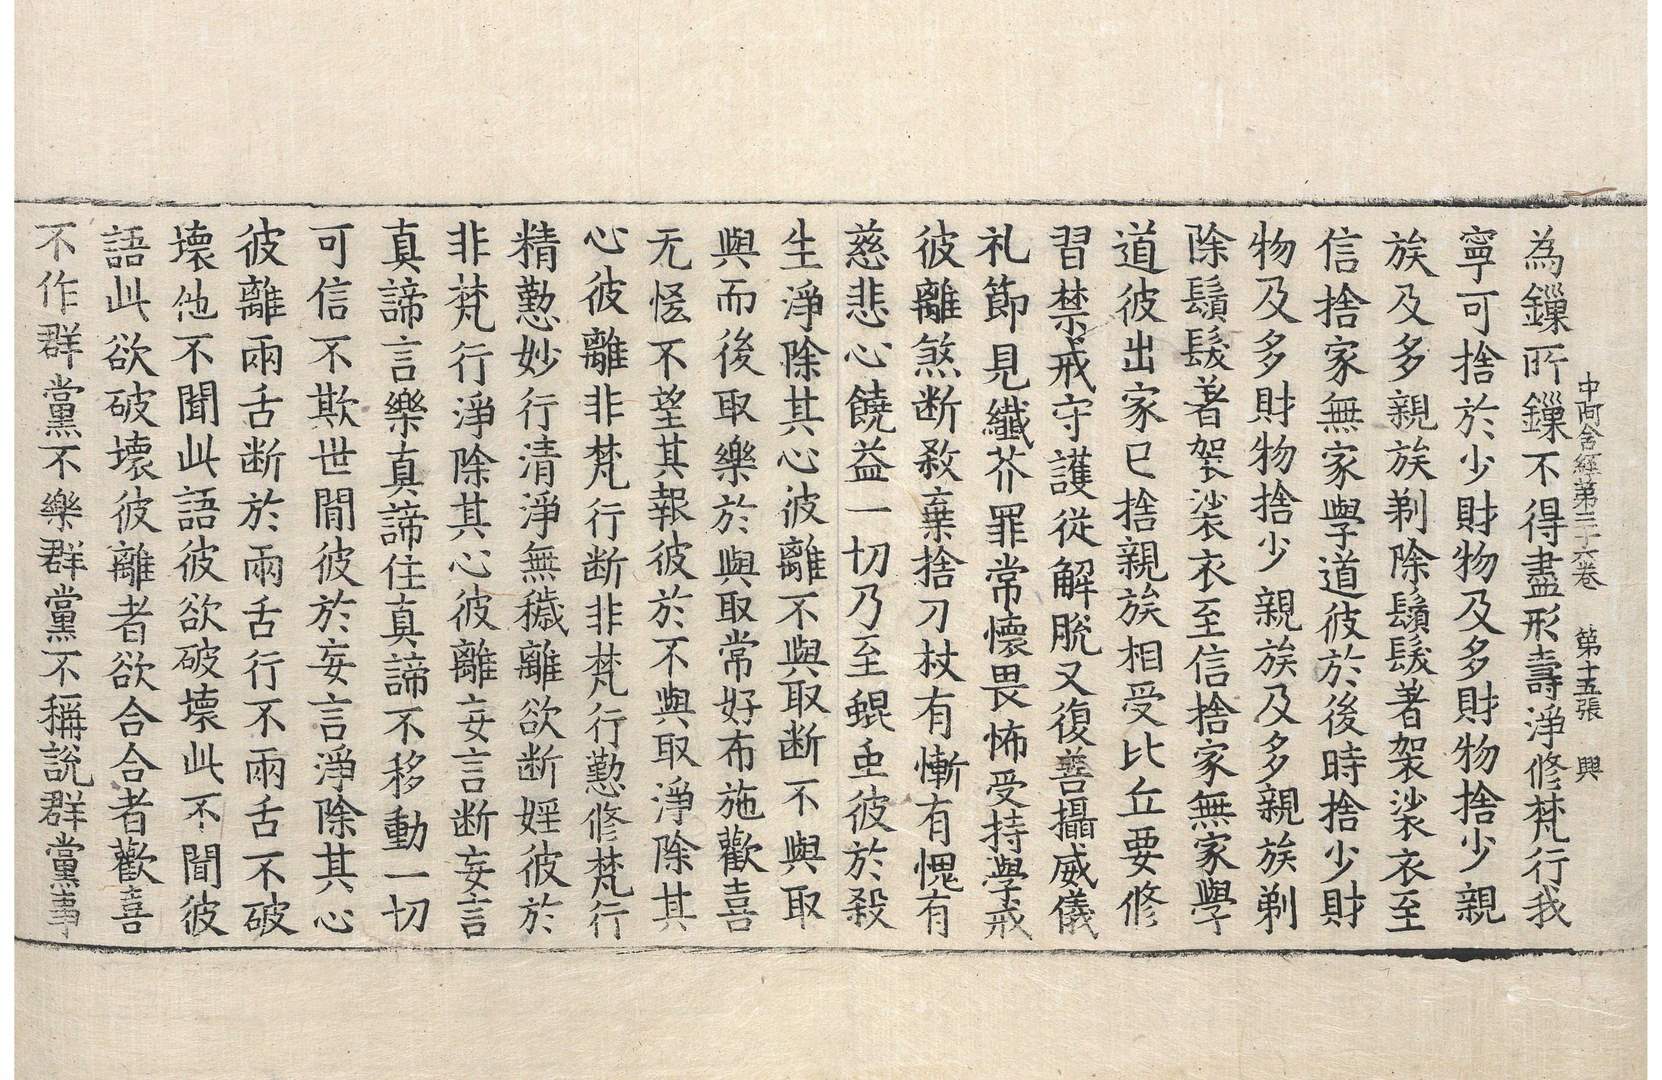 中阿含經第三十六卷　第十五張　興
為鏁所鏁不得盡形壽淨修梵行我
寧可捨於少財物及多財物捨少親
族及多親族剃除鬚髮著袈裟衣至
信捨家無家學道彼於後時捨少財
物及多財物捨少親族及多親族剃
除鬚髮著袈裟衣至信捨家無家學
道彼出家已捨親族相受比丘要修
習禁戒守護從解脫又復善攝威儀
礼節見纖芥罪常懷畏怖受持學戒
彼離煞断敎棄捨刀杖有慚有愧有
慈悲心饒益一切乃至蜫虫彼於殺
生淨除其心彼離不與取断不與取
與而後取樂於與取常好布施歡喜
无悭不望其報彼於不與取淨除其
心彼離非梵行断非梵行懃修梵行
精懃妙行清淨無穢離欲断婬彼於
非梵行淨除其心彼離妄言断妄言
真諦言樂真諦住真諦不移動一切
可信不欺世間彼於妄言淨除其心
彼離兩舌断於兩舌行不兩舌不破
壞他不聞此語彼欲破壞此不聞彼
語此欲破壞彼離者欲合合者歡喜
不作群黨不樂群黨不稱說群黨事